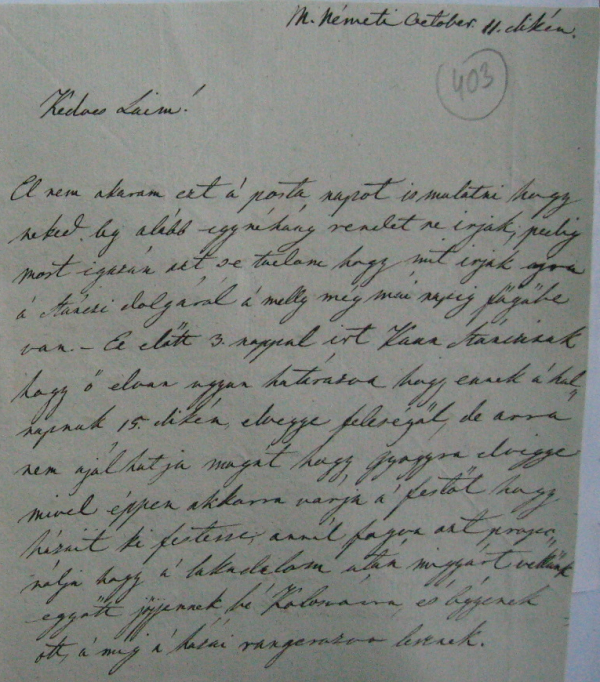 M. Németi October. 11. dikén.
403
Kedves Laim!
El nem akaram ezt á posta napot is mulatni hogy
neked leg alább egynéhány rendet ne irjak, pedig
most igazán azt se tudom hogy mit irjak
á dolgáról á melly még mái napig függőbe
van. – Ez előtt 3. nappal irt
hogy ő elvan ugyan határozva hogy ennek á hol„
napnak 15. dikén, elvegye feleségűl, de arra
nem ajálhatja magát hogy elvigye
mivel éppen akkorra várja á festőt hogy
házait ki festesse, annál fogva azt propo„
nálja hogy á lakadalom után velünk
együtt jőjjenek bé Kolosvárra, és légyenek
ott, á mig á házai rangerozva lesznek.